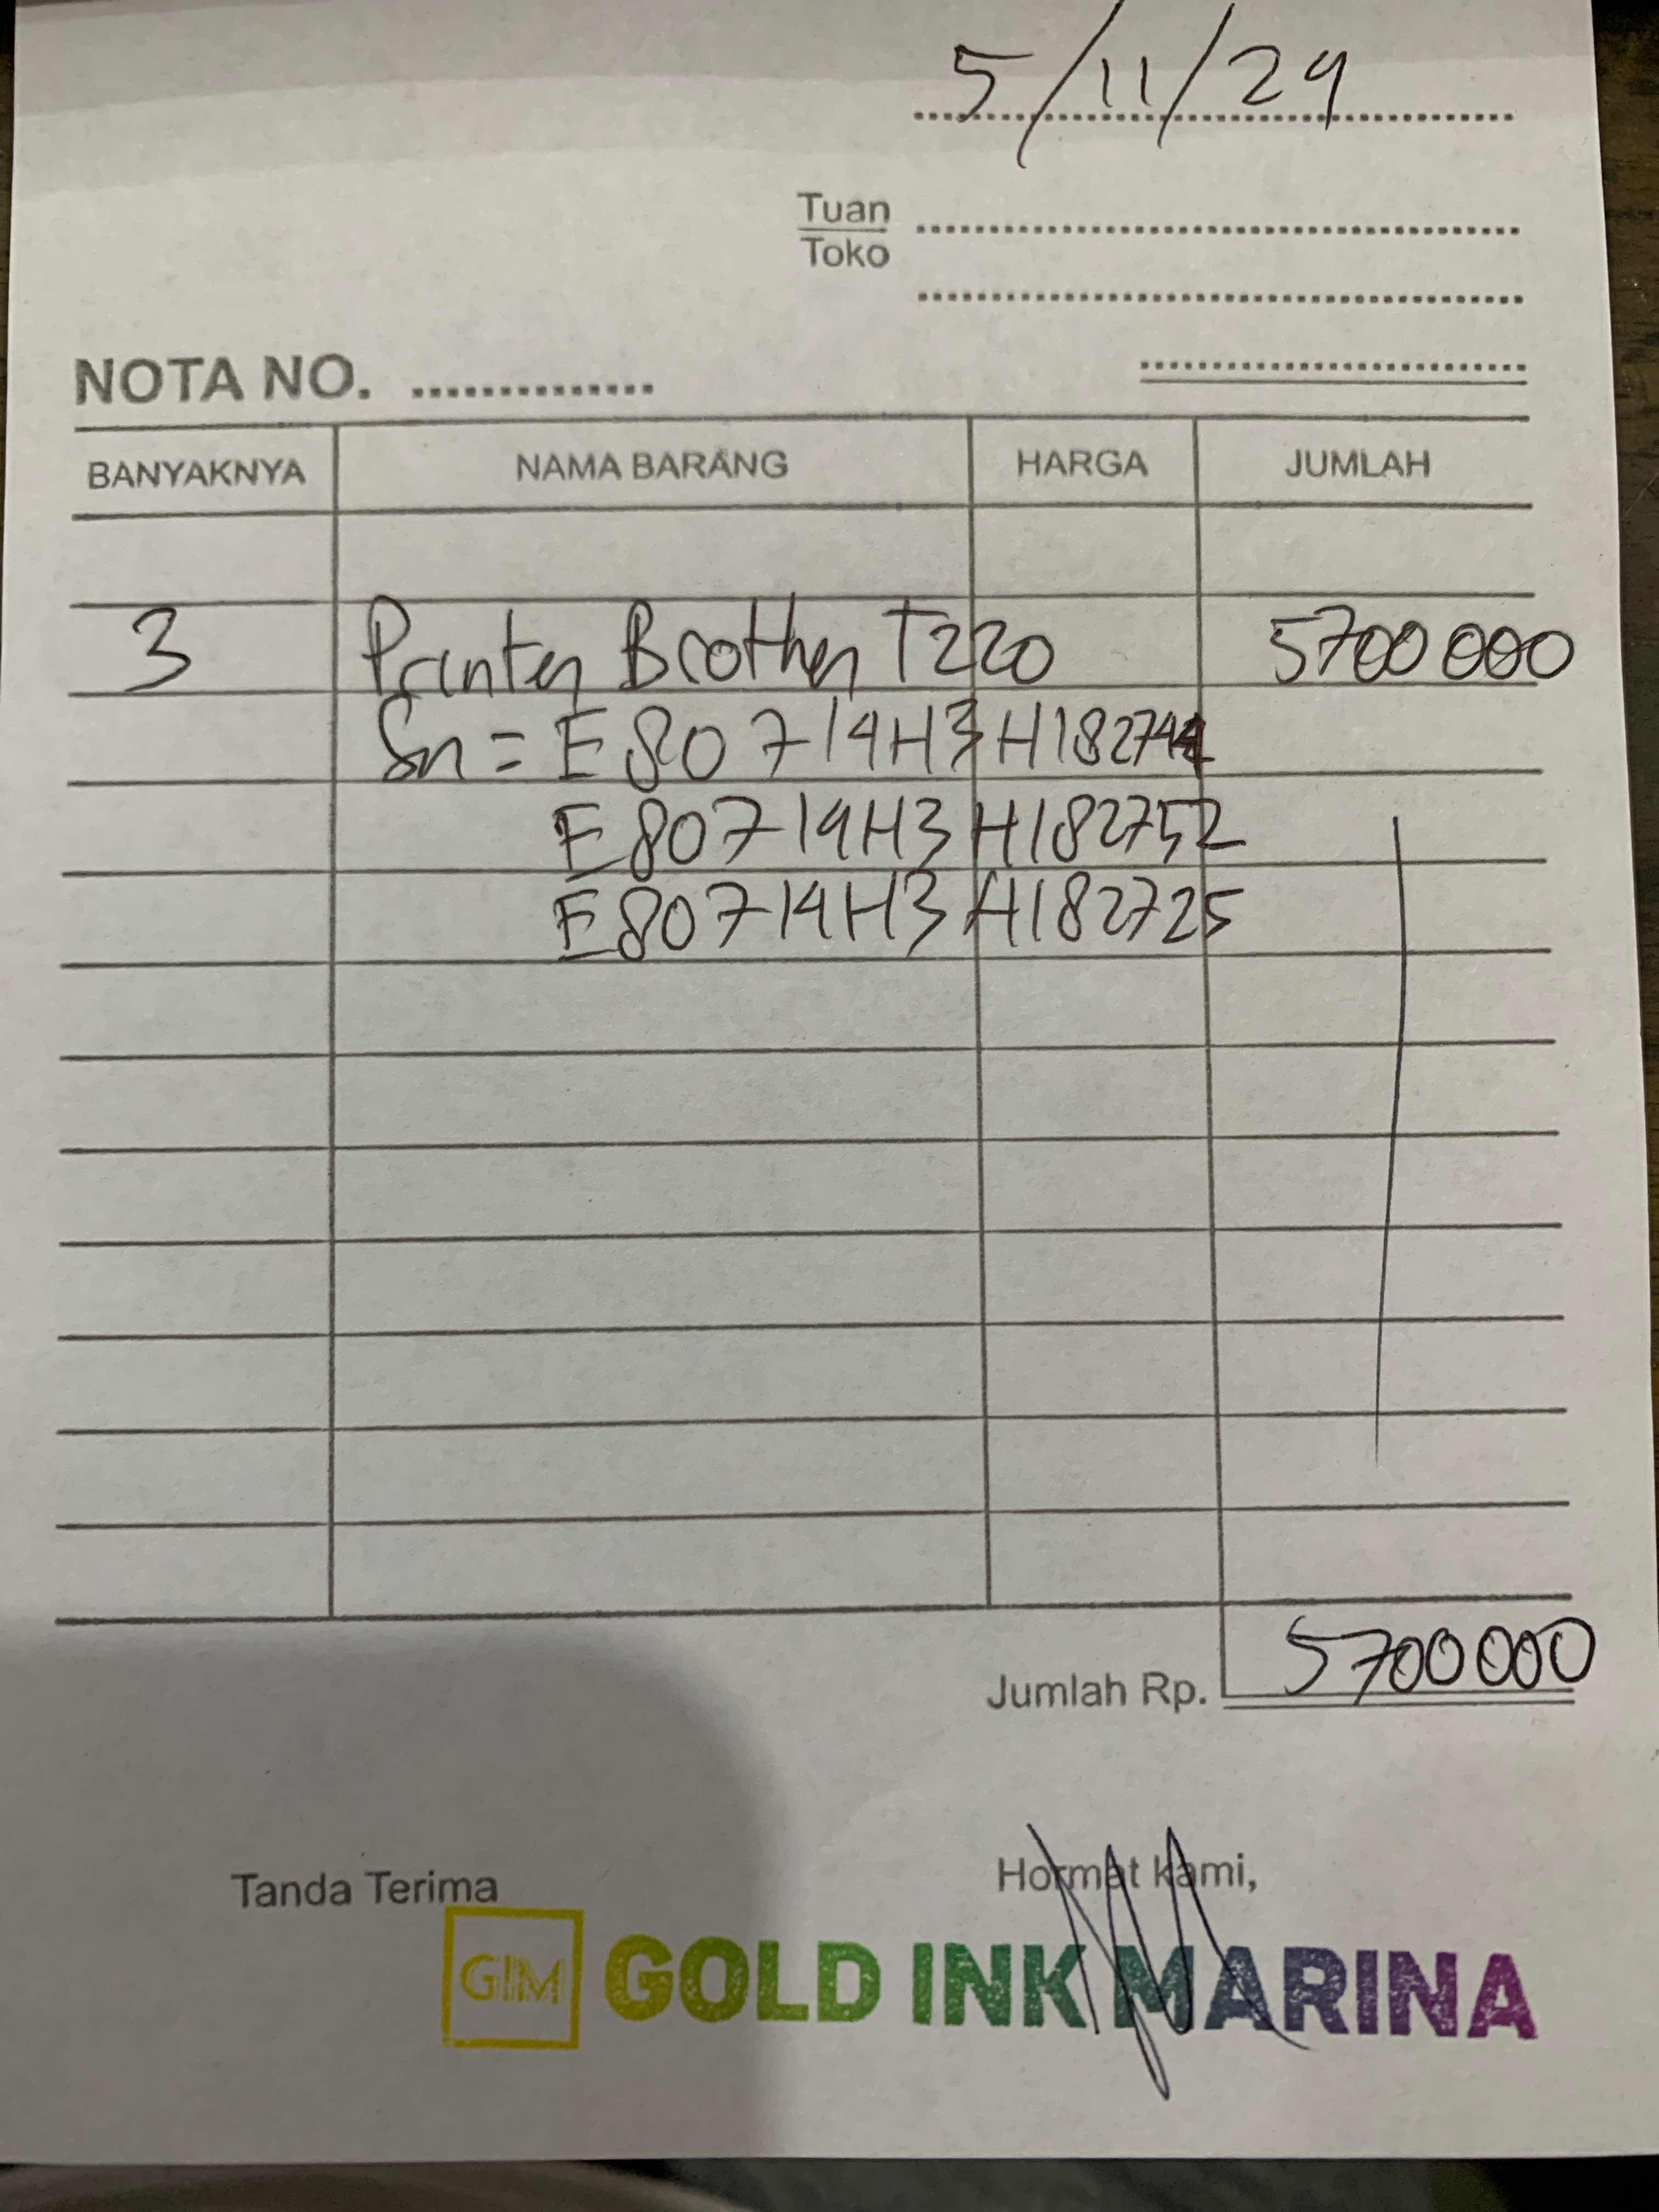 5/11/24
Tuan
Toko
NOTA NO.
BANYAKNYA NAMA BARANG HARGA JUMLAH
3 Printer Brother T220 5700 000
Sn = E80714H3H182744
E80714H3H182752
E80714H3H182725
Jumlah Rp. 5700 000
Tanda Terima Hormat kami,
GIM GOLD INK MARINA